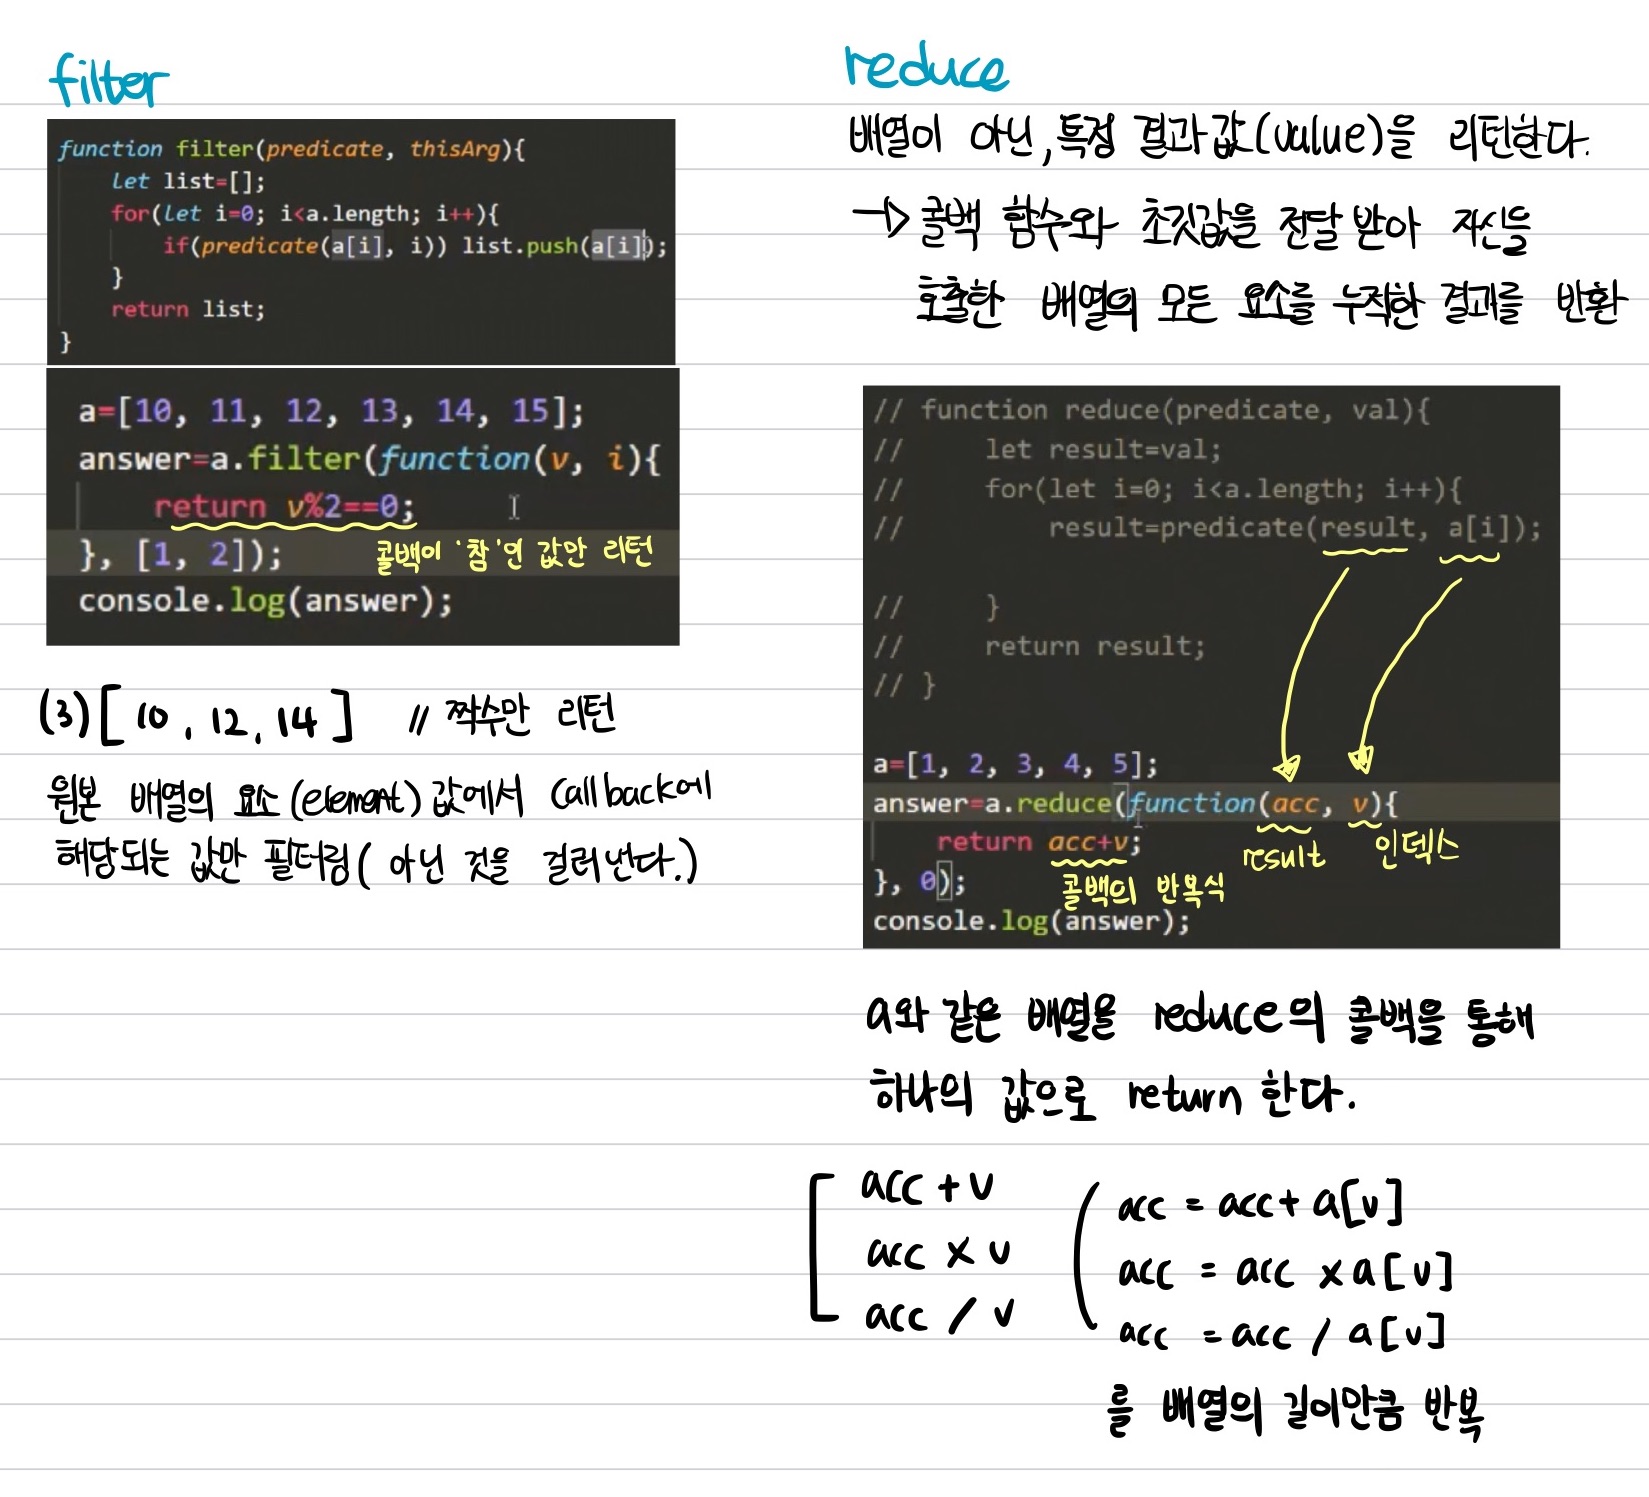 filter
function filter(predicate, thisArg){
let list=[];
for(let i=0; i<a.length; i++){
if(predicate(a[i], i)) list.push(a[i]);
}
return list;
}
a=[10, 11, 12, 13, 14, 15];
answer=a.filter(function(v, i){
return v%2==0;
}, [1, 2]); 콜백이 '참'인 값만 리턴
console.log(answer);
(3)[10, 12, 14] // 짝수만 리턴
원본 배열의 요소(element) 값에서 callback에
해당되는 값만 필터링( 아닌 것을 걸러낸다.)
reduce
배열이 아닌, 특정 결과 값(value)을 리턴한다.
→ 콜백 함수와 초깃값을 전달 받아 자신을
호출한 배열의 모든 요소를 누적한 결과를 반환
// function reduce(predicate, val){
// let result=val;
// for(let i=0; i<a.length; i++){
// result=predicate(result, a[i]);
// }
// return result;
// }
a=[1, 2, 3, 4, 5];
answer=a.reduce(function(acc, v){
return acc+v; result 인덱스
}, 0); 콜백의 반복식
console.log(answer);
a와 같은 배열을 reduce의 콜백을 통해
하나의 값으로 return 한다.
acc + v
acc x v
acc / v
acc = acc + a[v]
acc = acc x a[v]
acc = acc / a[v]
를 배열의 길이만큼 반복